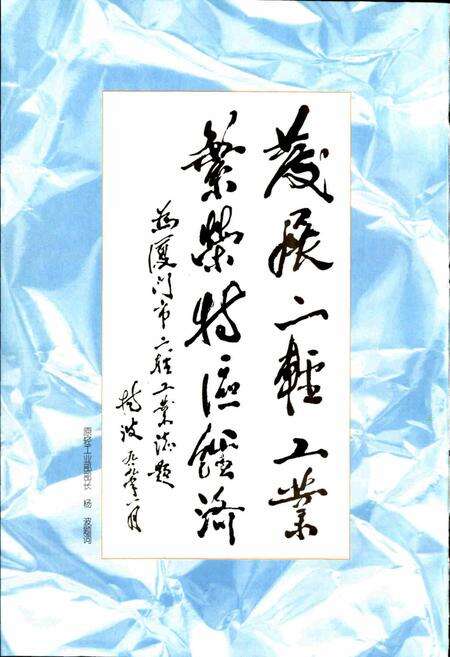 發展二輕工業
繁榮特區經濟
為廈门市二輕工業志題
楊波
原轻工业部部长 杨 波题词